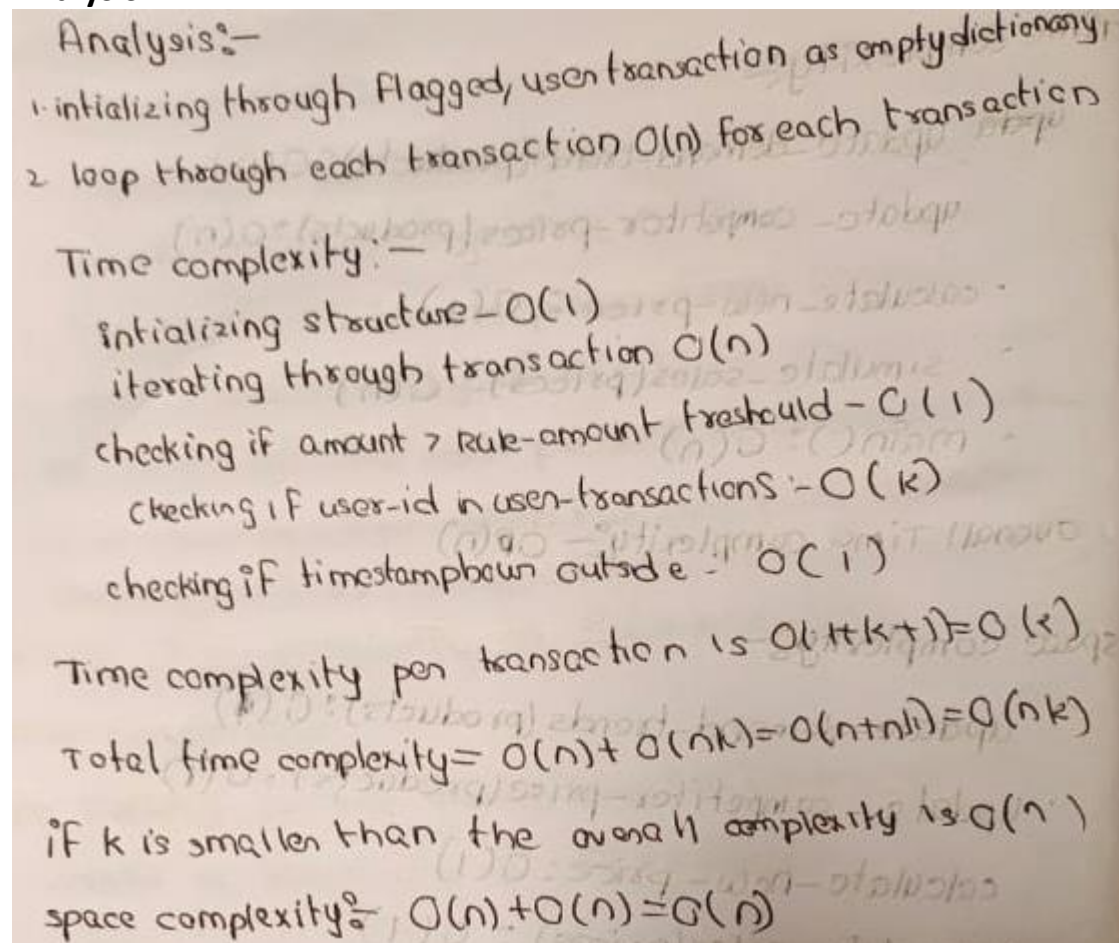 Analysis:-
1. intializing through Flagged, user transaction as empty dictionary,
2 loop through each transaction O(n) for each transaction
Time complexity:-
intializing structure - O(1)
iterating through transaction O(n)
checking if amount > Rule-amount treshould - O(1)
checking if user-id in user-transactions :- O(k)
checking if timestamphour outside :- O(1)
Time complexity per transaction is O(1+k+1)=O(k)
Total time complexity= O(n)+ O(nk)= O(n+nk)=O(nk)
if k is smaller than the overall complexity is O(n)
space complexity:- O(n)+O(n)=O(n)